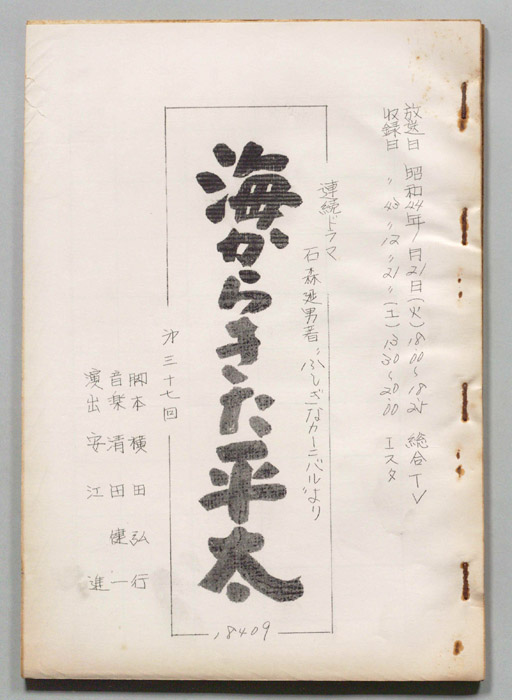 放送日 昭和44年1月21日(火)18.00〜18.25 総合TV
収録日 〃43〃12〃21〃(土)13.30〜20.00 Iスタ
連続ドラマ
石森延男著〝ふしぎなカーニバル〟より
海からきた平太
㐧三十七回
脚本 横田弘行
音楽 清田健一
演出 安江進
18409